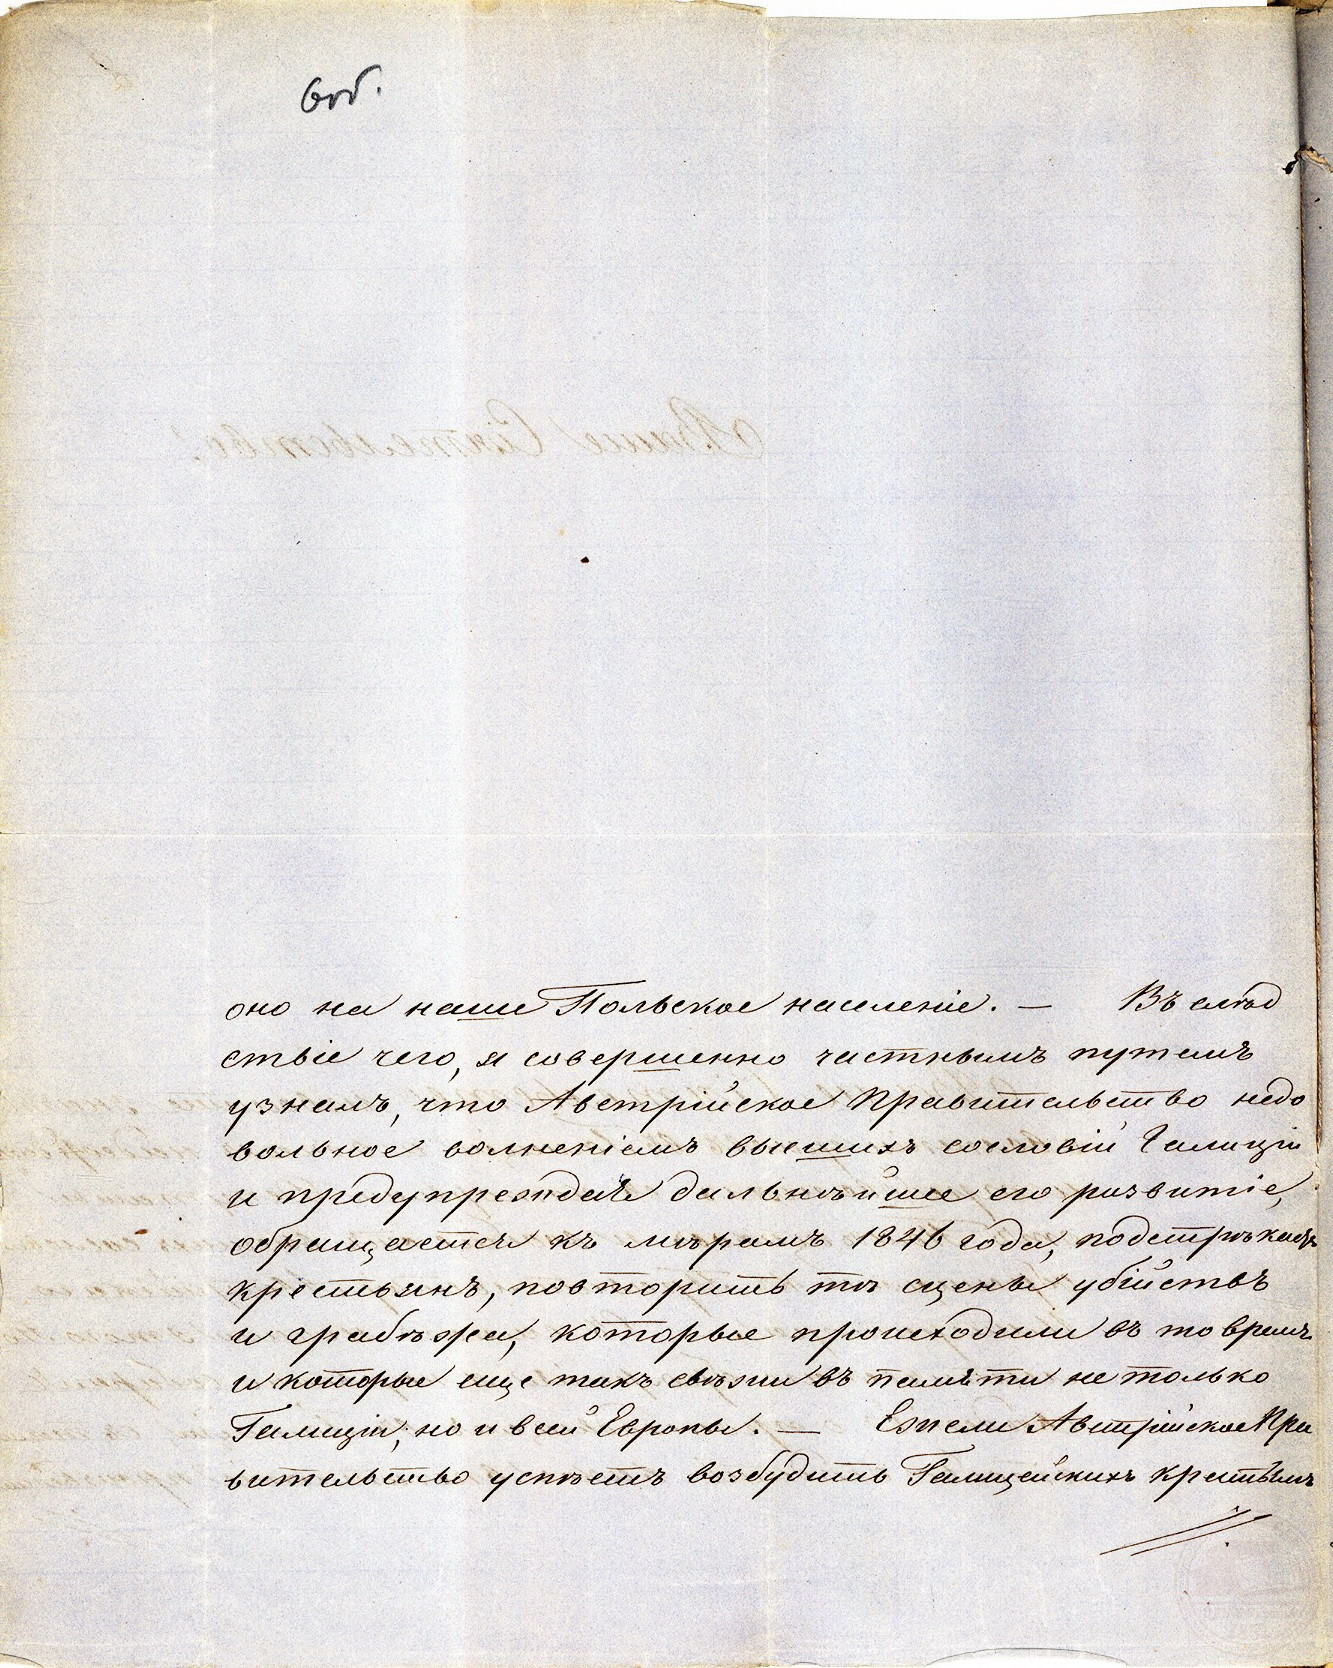 6об.
оно на наше Польское население. — Въ слѣд
ствіе чего, я совершенно частнымъ путемъ
узналъ, что Австрійское Правительство недо
вольное волненіемъ высшихъ сословій Галиціи
и предупреждая дальнѣйшее его развитіе,
обращается къ мѣрамъ 1846 года, подстрѣкая
крестьянъ, повторить тѣ сцены убійствъ
и грабежа, которые происходили въ то время
и которые еще такъ свѣжи въ памяти не только
Галиціи, но и всей Европы. — Ежели Австрійское Пра
вительство успѣетъ возбудить Галицейскихъ крестьянъ